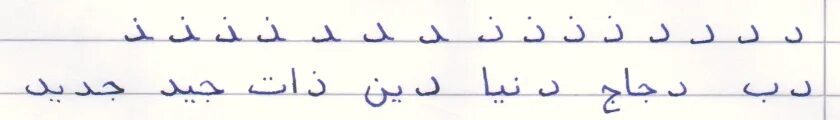 د د د د ذ ذ ذ ذ ـد ـد ـد ـذ ـذ ـذ ـذ
دب دجاج دنيا دين ذات جيد جديد